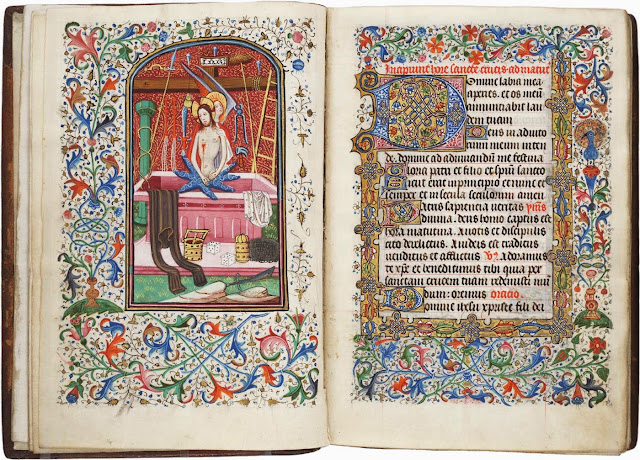 Incipiunt hore sancte crucis ad matut
Domine labia mea
aperies. et os meum
annuntiabit lau
dem tuam
Deus in adiuto
rium meum inten
de. domine ad adiuuandū me festina
Gloria patri et filio et spūi sancto
Sicut erat in principio et nunc et
semper et in secula seculorum amen
Patris sapiencia ueritas
diuina. deus homo captus est
hora matutina. A notis et discipulis
cito derelictus. A iudeis est traditus
uenditus et afflictus V. Adoramus
te xp̄e et benedicimus tibi quia per
sanctam crucem tuam redemisti mū
dum. oremus oracio.
Domine ihesu xp̄iste fili dei